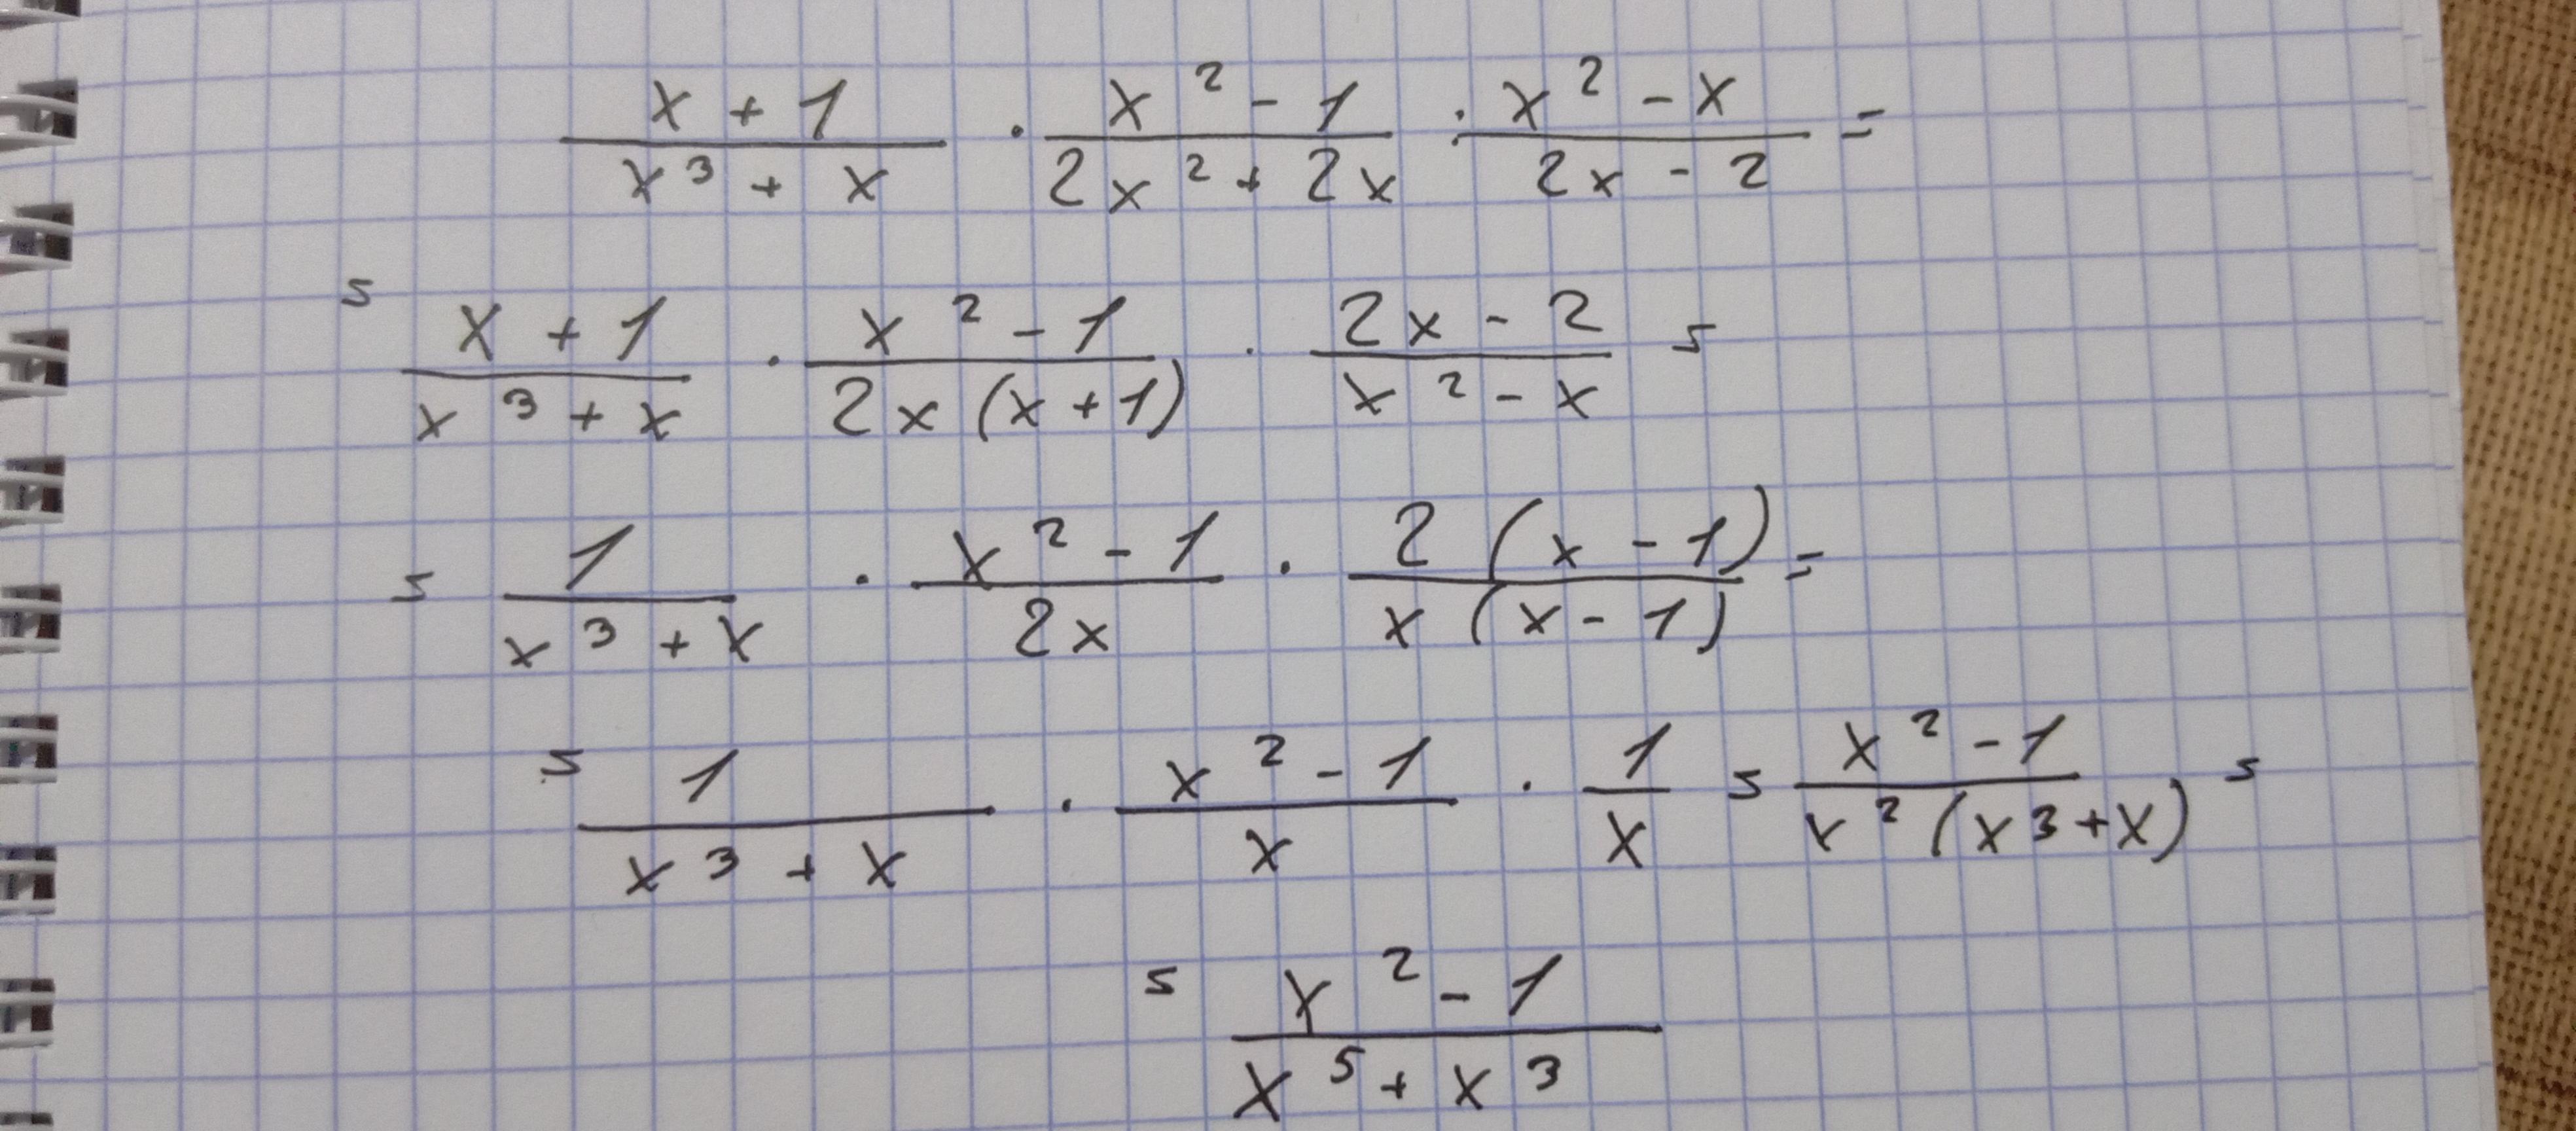 (x + 1)/(x³ + x) · (x² - 1)/(2x² + 2x) : (x² - x)/(2x - 2) =
= (x + 1)/(x³ + x) · (x² - 1)/(2x(x + 1)) · (2x - 2)/(x² - x) =
= 1/(x³ + x) · (x² - 1)/(2x) · (2(x - 1))/(x(x - 1)) =
= 1/(x³ + x) · (x² - 1)/x · 1/x = (x² - 1)/(x²(x³ + x)) =
= (x² - 1)/(x⁵ + x³)